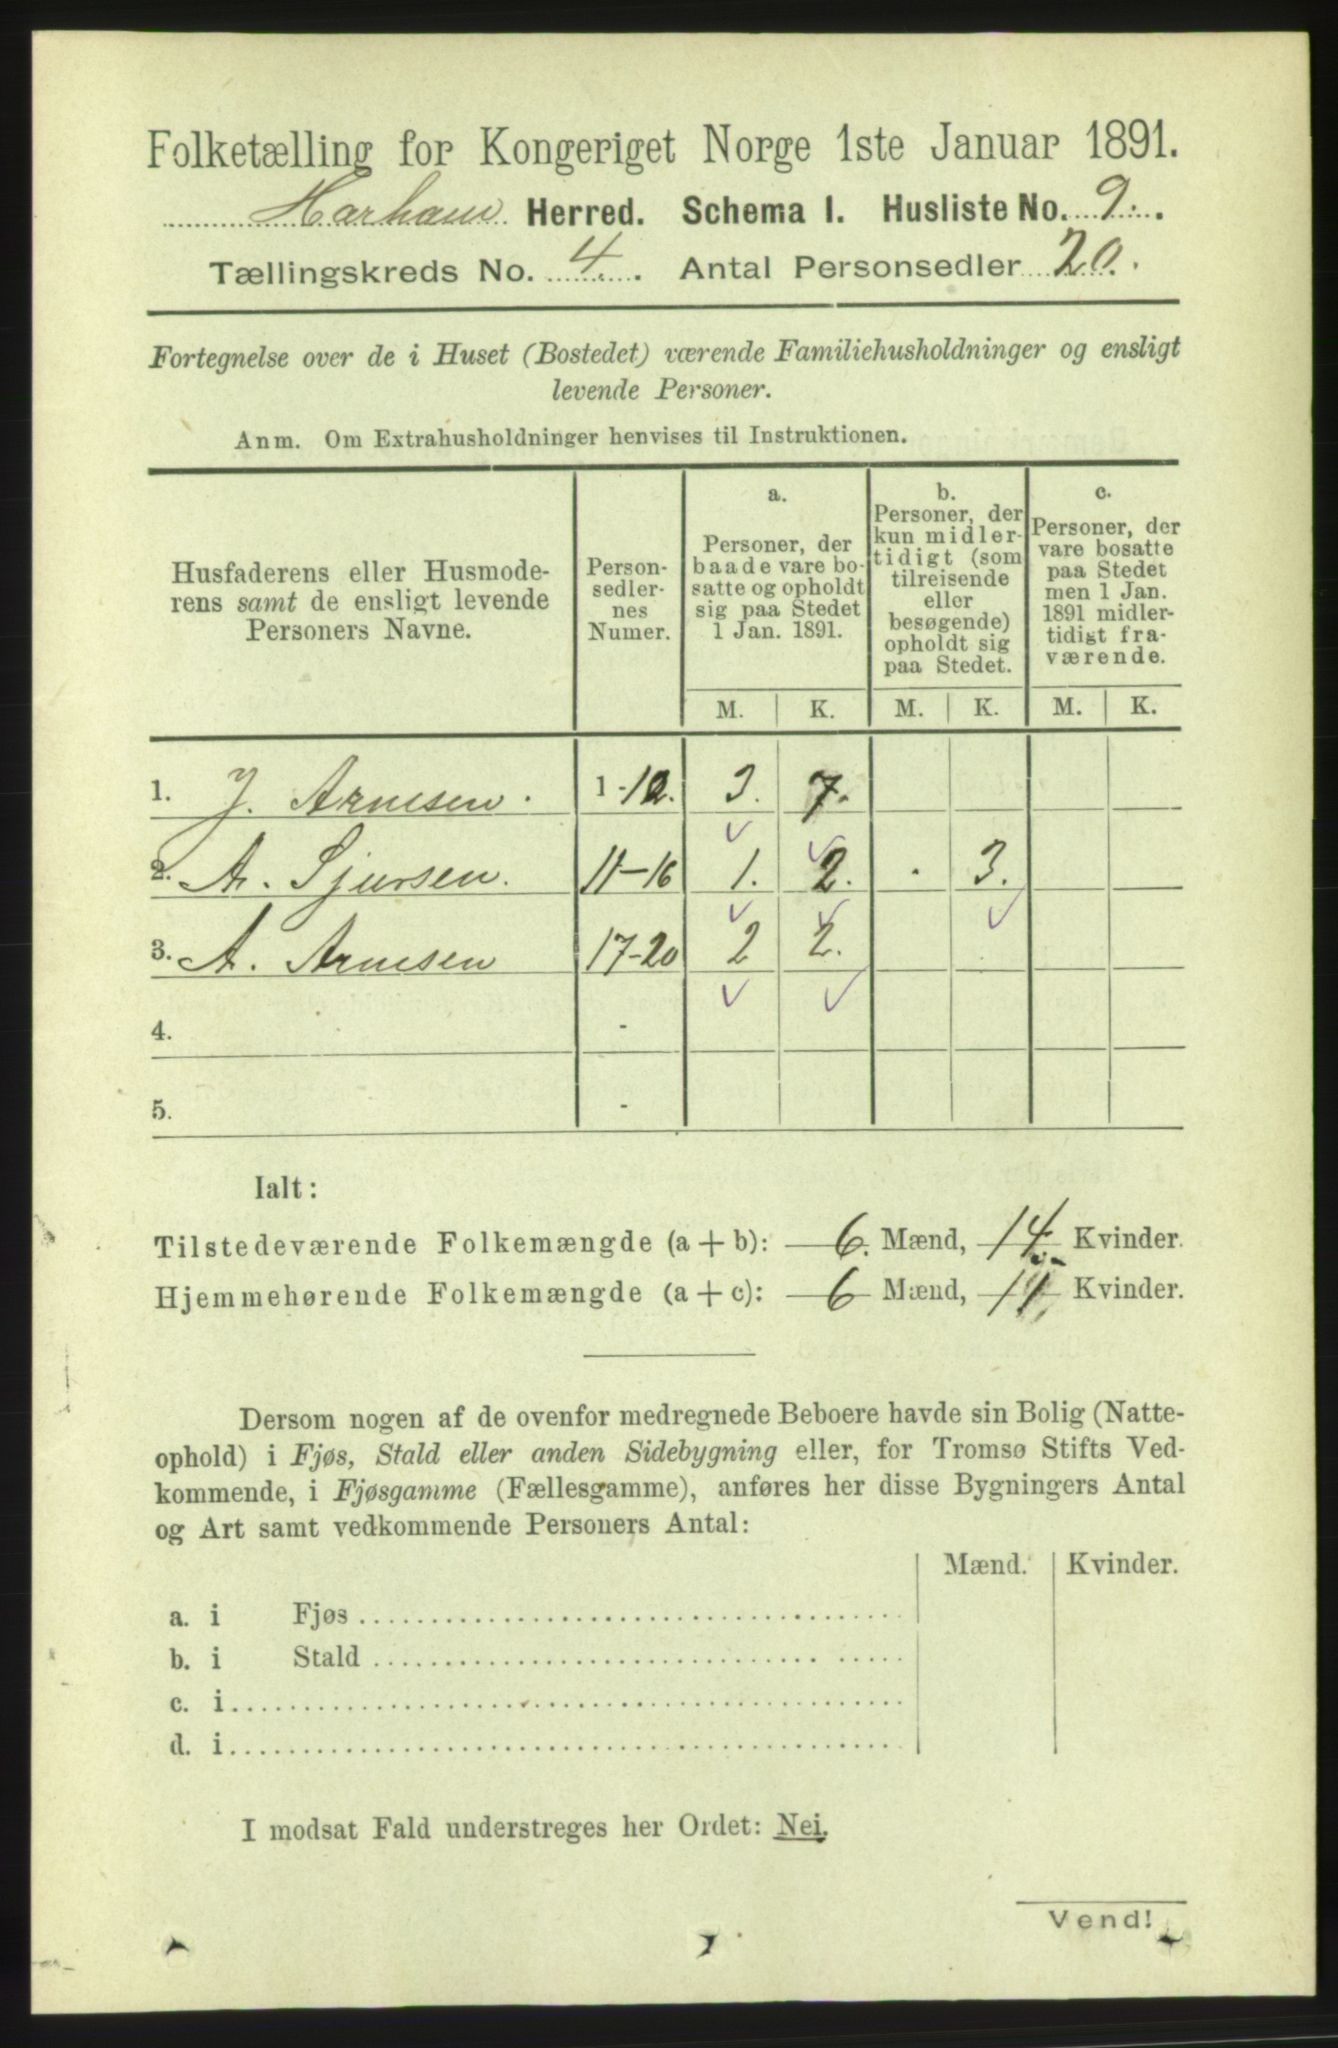 Folketælling for Kongeriget Norge 1ste Januar 1891.
Harham Herred. Schema I. Husliste No. 9.
Tællingskreds No. 4. Antal Personsedler 20.
Fortegnelse over de i Huset (Bostedet) værende Familiehusholdninger og ensligt
levende Personer.
Anm. Om Extrahusholdninger henvises til Instruktionen.
Husfaderens eller Husmode-
rens samt de ensligt levende
Personers Navne.
Person-
sedler-
nes
Numer.
a.
Personer, der
baade vare bo-
satte og opholdt
sig paa Stedet
1 Jan. 1891.
b.
Personer, der
kun midler-
tidigt (som
tilreisende
eller
besøgende)
opholdt sig
paa Stedet.
c.
Personer, der
vare bosatte
paa Stedet
men 1 Jan.
1891 midler-
tidigt fra-
værende.
M. K. M. K. M. K.
1. J. Arnesen. 1-10. 3. 7.
2. A. Sjursen. 11-16 1. 2. . 3.
3. A. Arnesen 17-20 2 2.
4. -
5. -
Ialt:
Tilstedeværende Folkemængde (a + b): 6. Mænd, 14. Kvinder.
Hjemmehørende Folkemængde (a + c): 6 Mænd, 11 Kvinder.
Dersom nogen af de ovenfor medregnede Beboere havde sin Bolig (Natte-
ophold) i Fjøs, Stald eller anden Sidebygning eller, for Tromsø Stifts Ved-
kommende, i Fjøsgamme (Fællesgamme), anføres her disse Bygningers Antal
og Art samt vedkommende Personers Antal:
Mænd. Kvinder.
a. i Fjøs
b. i Stald
c. i
d. i
I modsat Fald understreges her Ordet: Nei.
Vend!